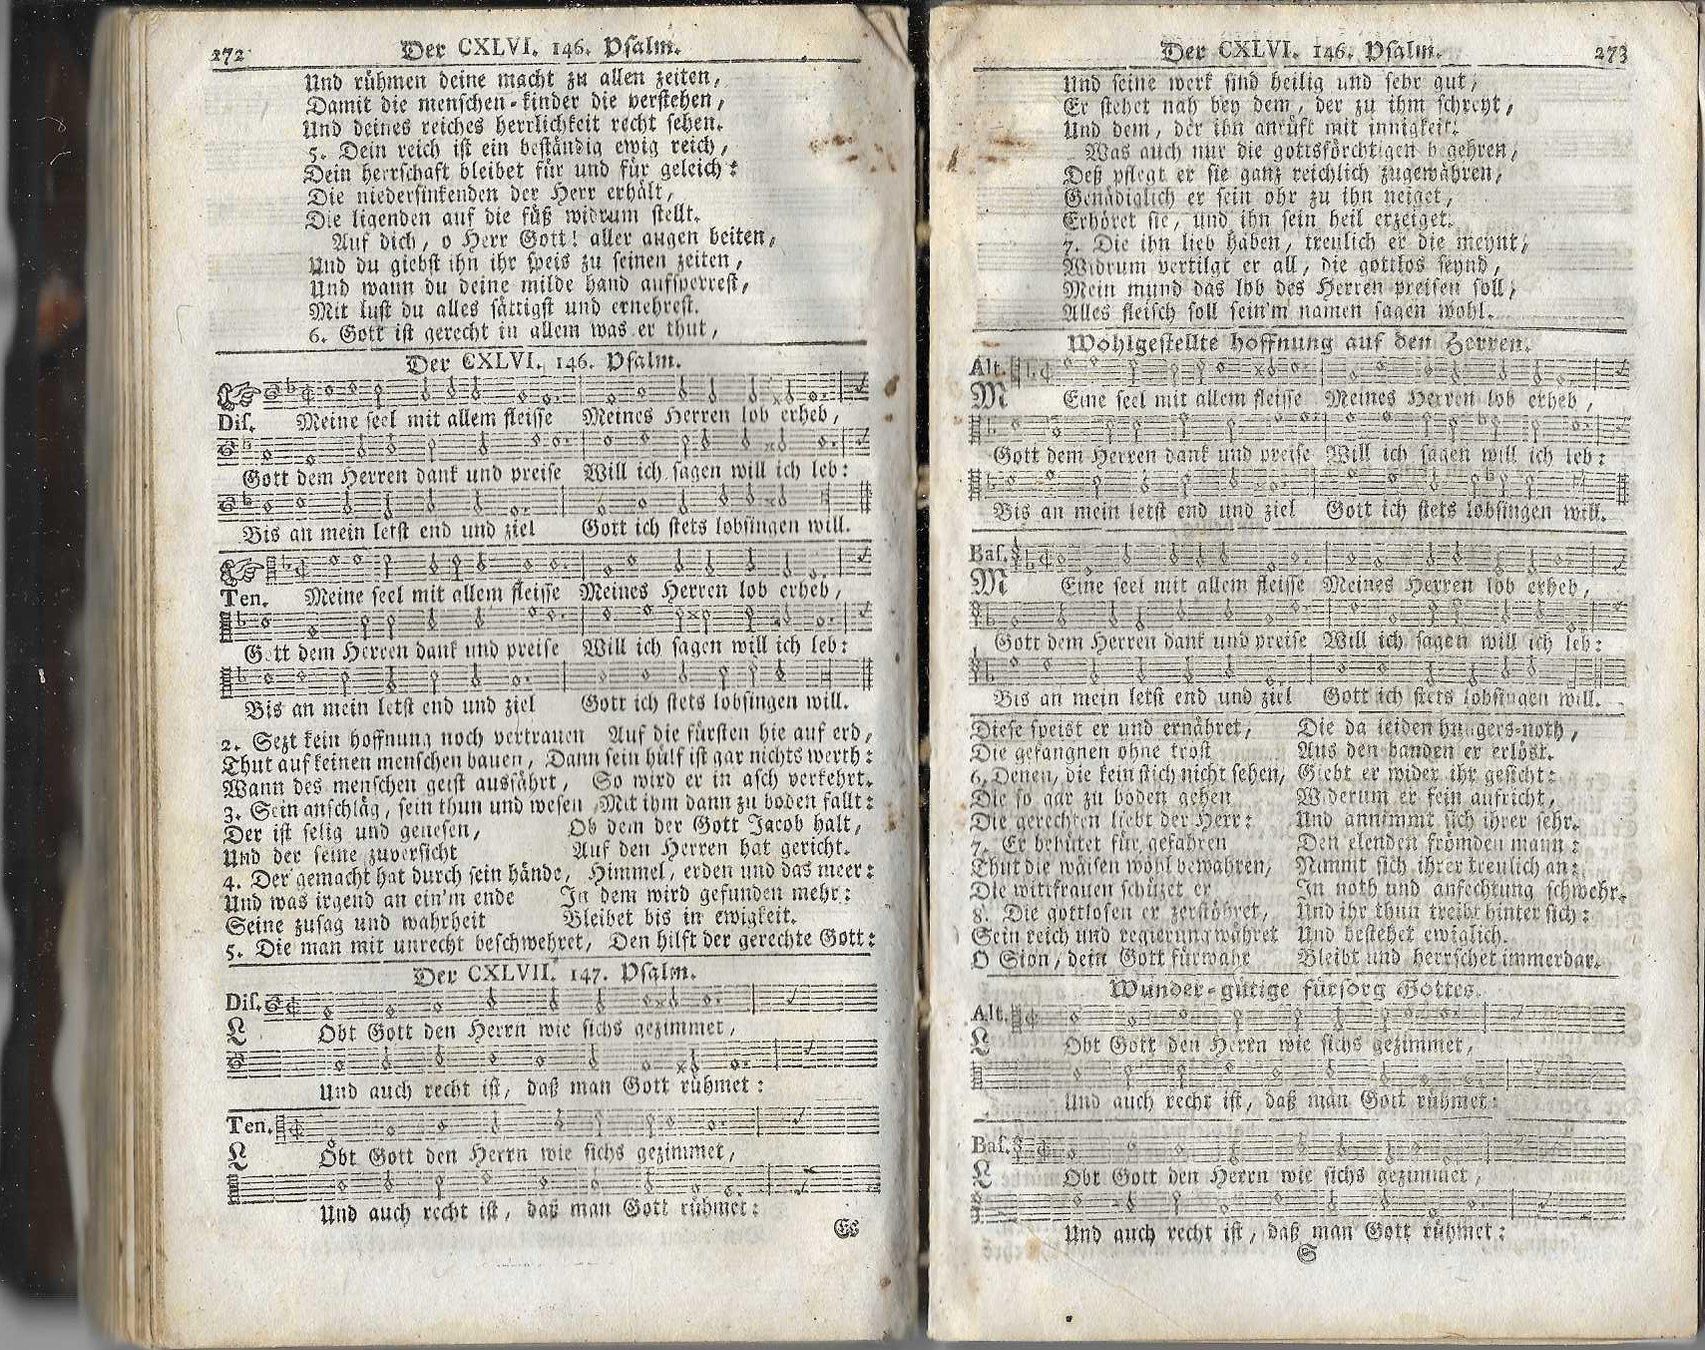 272 Der CXLVI. 146. Psalm.
Und rühmen deine macht zu allen zeiten,
Damit die menschen-kinder die verstehen,
Und deines reiches herrlichkeit recht sehen.
5. Dein reich ist ein beständig ewig reich,
Dein herrschaft bleibet für und für geleich:
Die niedersinkenden der Herr erhält,
Die ligenden auf die füß widrum stellt.
Auf dich, o Herr Gott! aller augen beiten,
Und du giebst ihn ihr speis zu seinen zeiten,
Und wann du deine milde hand aufsperrest,
Mit lust du alles sättigst und ernehrest.
6. Gott ist gerecht in allem was er thut,
Der CXLVI. 146. Psalm.
Dis. Meine seel mit allem fleisse Meines Herren lob erheb,
Gott dem Herren dank und preise Will ich sagen will ich leb:
Bis an mein letst end und ziel Gott ich stets lobsingen will.
Ten. Meine seel mit allem fleisse Meines Herren lob erheb,
Gott dem Herren dank und preise Will ich sagen will ich leb:
Bis an mein letst end und ziel Gott ich stets lobsingen will.
2. Sezt kein hoffnung noch vertrauen Auf die fürsten hie auf erd,
Thut auf keinen menschen bauen, Dann sein hülf ist gar nichts werth:
Wann des menschen geist ausfährt, So wird er in asch verkehrt.
3. Sein anschläg, sein thun und wesen Mit ihm dann zu boden fallt:
Der ist selig und genesen, Ob dem der Gott Jacob halt,
Und der seine zuversicht Auf den Herren hat gericht.
4. Der gemacht hat durch sein hände, Himmel, erden und das meer:
Und was irgend an ein'm ende In dem wird gefunden mehr:
Seine zusag und wahrheit Bleibet bis in ewigkeit.
5. Die man mit unrecht beschwehret, Den hilft der gerechte Gott:
Der CXLVII. 147. Psalm.
Dis.
L Obt Gott den Herrn wie sichs gezimmet,
Und auch recht ist, daß man Gott rühmet:
Ten.
L Obt Gott den Herrn wie sichs gezimmet,
Und auch recht ist, daß man Gott rühmet:
Der CXLVI. 146. Psalm. 273
Und seine werk sind heilig und sehr gut,
Er stehet nah bey dem, der zu ihm schreyt,
Und dem, der ihn anrüft mit innigkeit.
Was auch nur die gottsförchtigen begehren,
Deß pflegt er sie ganz reichlich zugewähren,
Genädiglich er sein ohr zu ihn neiget,
Erhöret sie, und ihn sein heil erzeiget.
7. Die ihn lieb haben, treulich er die meynt,
Widrum vertilgt er all, die gottlos seynd,
Mein mund das lob des Herren preisen soll,
Alles fleisch soll sein'm namen sagen wohl.
Wohlgestellte hoffnung auf den Herren.
Alt.
M Eine seel mit allem fleisse Meines Herren lob erheb,
Gott dem Herren dank und preise Will ich sagen will ich leb:
Bis an mein letst end und ziel Gott ich stets lobsingen will.
Bas.
M Eine seel mit allem fleisse Meines Herren lob erheb,
Gott dem Herren dank und preise Will ich sagen will ich leb:
Bis an mein letst end und ziel Gott ich stets lobsingen will.
Diese speist er und ernähret, Die da leiden hungers-noth,
Die gefangnen ohne trost Aus den banden er erlöst.
6. Denen, die kein stich nicht sehen, Giebt er wider ihr gesicht:
Die so gar zu boden gehen Widerum er fein aufricht,
Die gerechten liebt der Herr: Und annimmt sich ihrer sehr.
7. Er behütet für gefahren Den elenden frömden mann:
Thut die wäisen wohl bewahren, Nimmt sich ihrer treulich an:
Die wittfrauen schüzet er In noth und anfechtung schwehr.
8. Die gottlosen er zerstöhret, Und ihr thun treibt hinter sich:
Sein reich und regierung währet Und bestehet ewiglich.
O Sion, dein Gott fürwahr Bleibt und herrschet immerdar.
Wunder-gütige fürsorg Gottes.
Alt.
L Obt Gott den Herrn wie sichs gezimmet,
Und auch recht ist, daß man Gott rühmet:
Bas.
L Obt Gott den Herrn wie sichs gezimmet,
Und auch recht ist, daß man Gott rühmet:
S